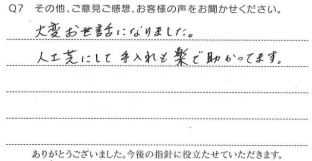 Q7 その他、ご意見ご感想、お客様の声をお聞かせください。
大変お世話になりました。
人工芝にして手入れも楽で助かってます。
ありがとうございました。今後の指針に役立たせていただきます。